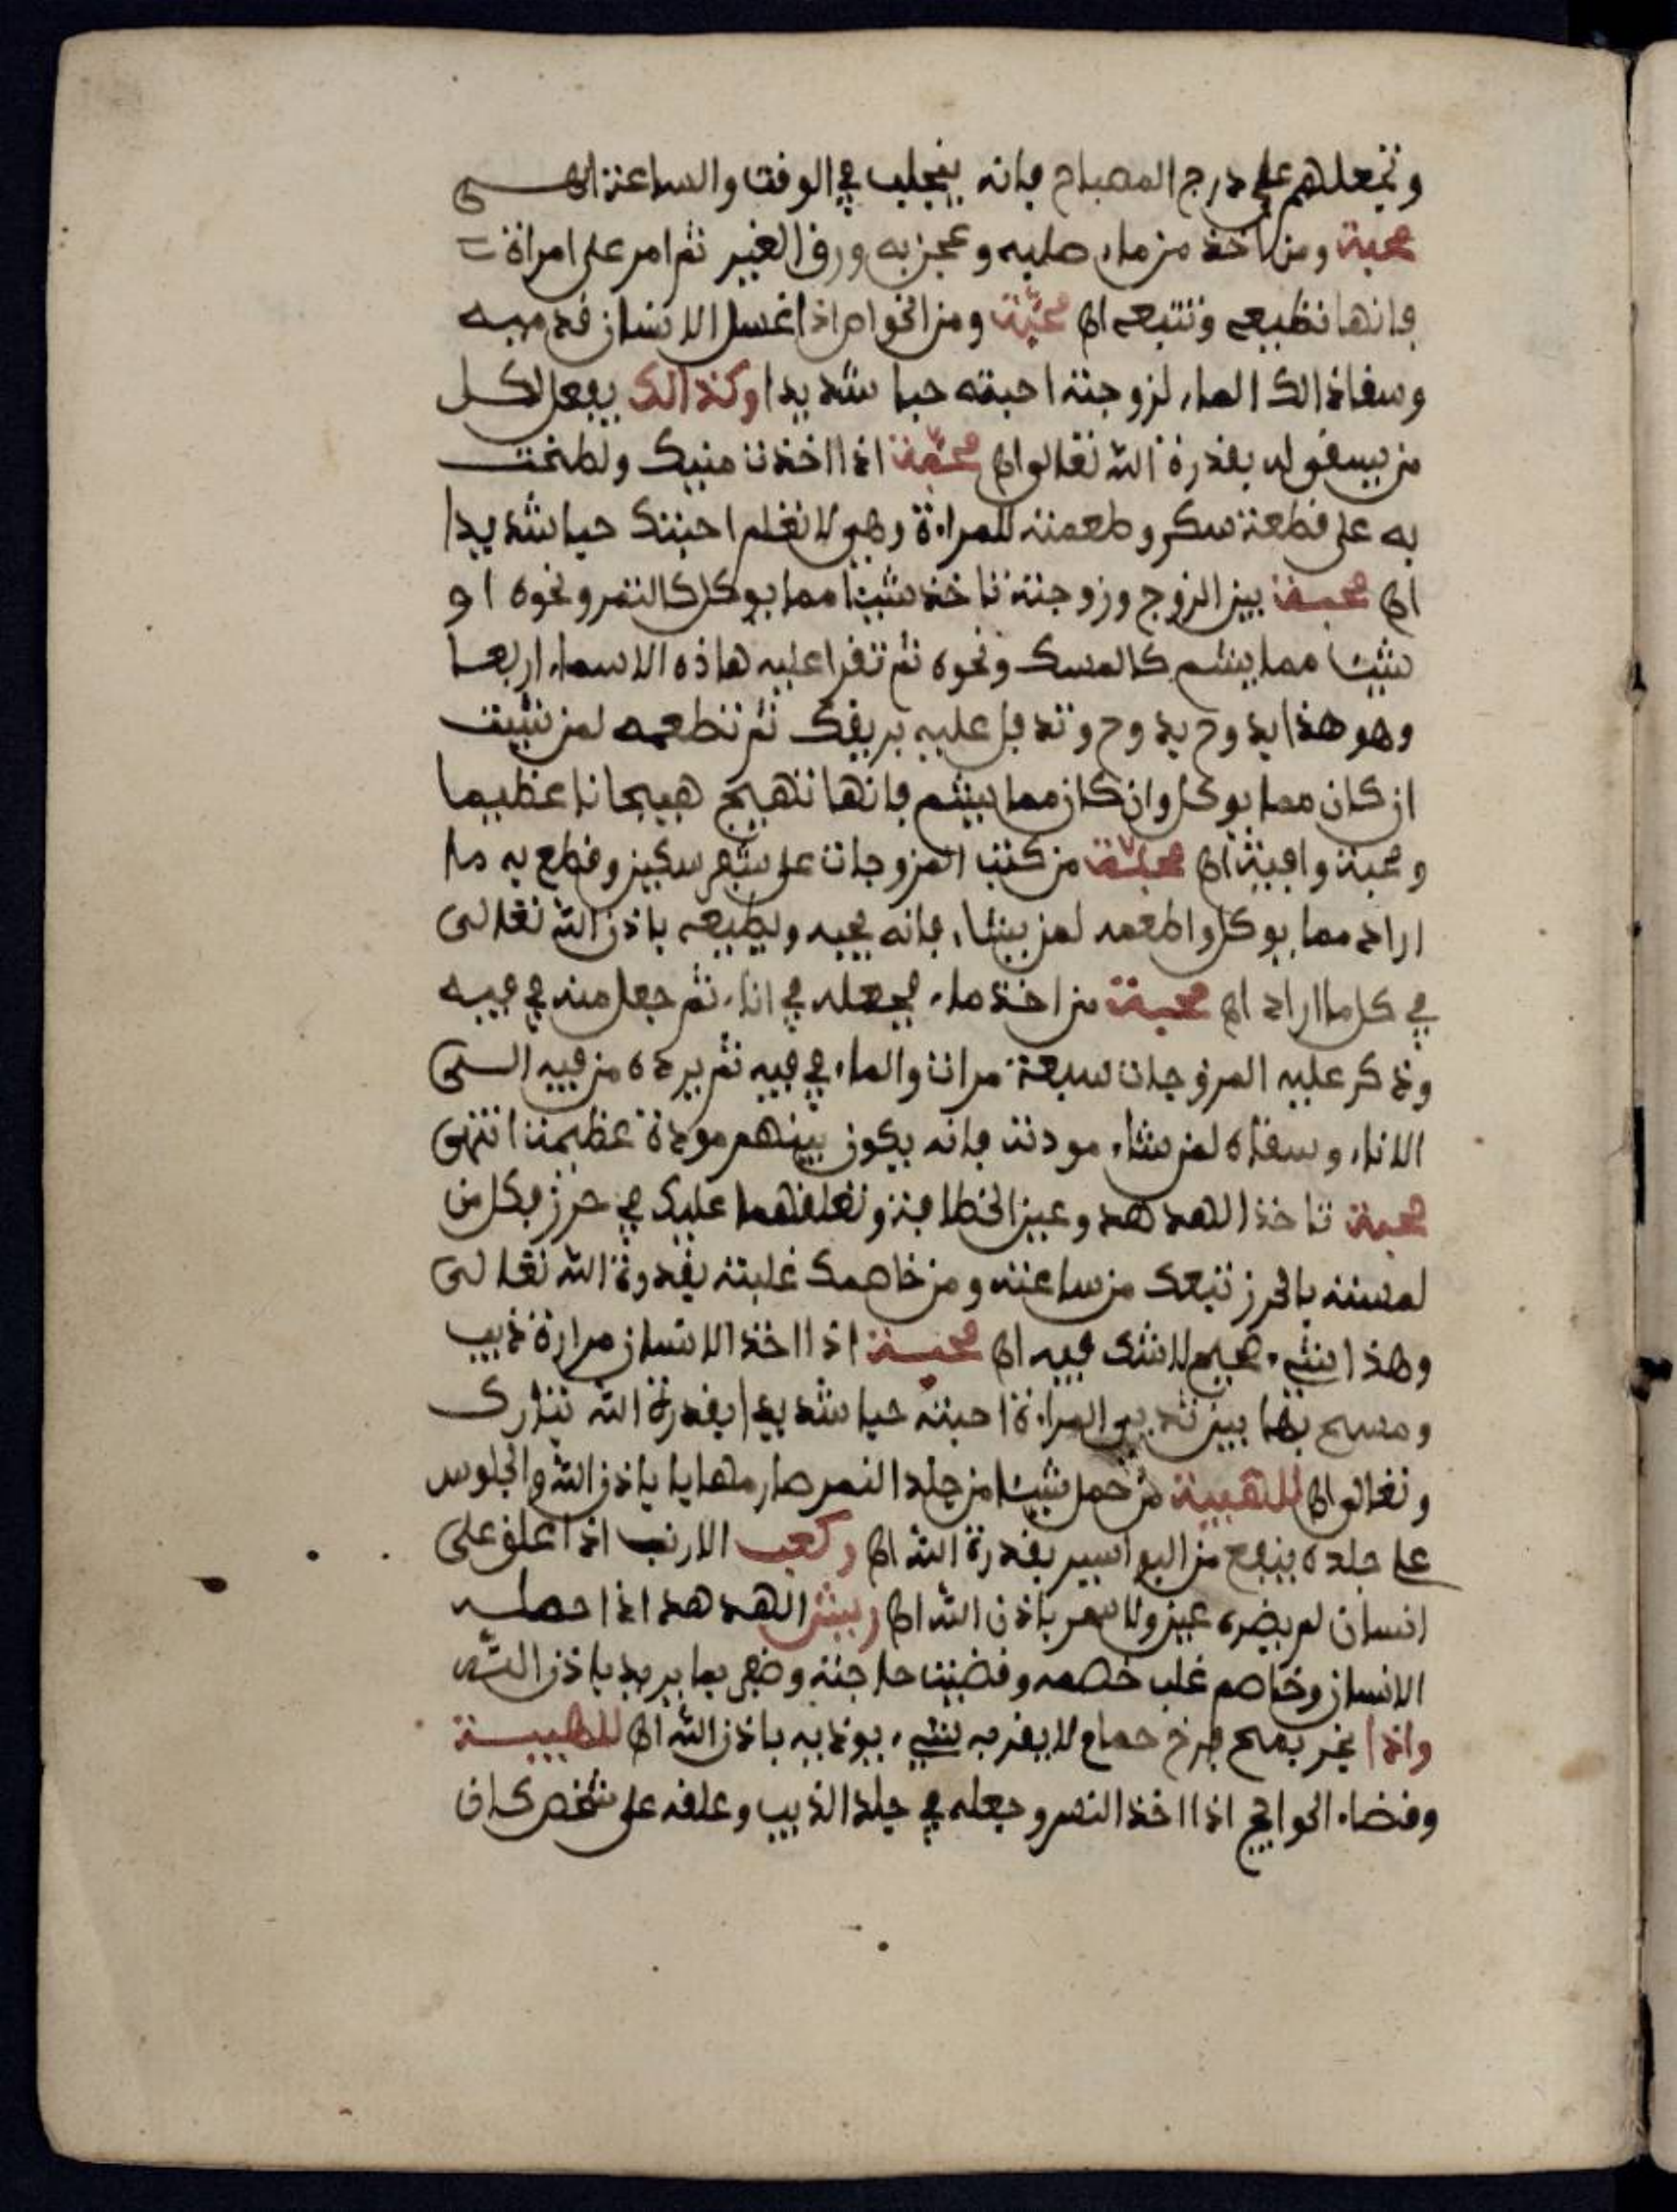 وتجعلهم على درج المصباح فانه ينجلب في الوقت والساعة اهـ
محبة ومن اخذ من ماء صلبه وعجن به ورق الغبير ثم امر على امراة
فانها تطيعه وتتبعه اهـ محبة ومن الخواص اذا غسل الانسان قدميه
وسقا ذالك الماء لزوجته احبته حبا شديدا وكذالك يفعل لكل
من يسقى له بقدرة الله تعالى اهـ محبة اذا اخذت منيك ولطخت
به على قطعة سكر وطعمته للمراة وهي لا تعلم احبتك حبا شديدا
اهـ محبة بين الزوج وزوجته تاخذ شيئا مما يوكل كالتمر ونحوه او
شيئا مما يشم كالمسك ونحوه ثم تقرا عليه هاذه الاسماء اربعا
وهو هذا يدوح يدوح وتدفل عليه بريقك ثم تطعمه لمن شيت
ان كان مما يوكل وان كان مما يشم فانها تهيج هيجانا عظيما
ومحبة وافية اهـ محبة من كتب المزوجات على شفر سكين وقطع به ما
اراد مما يوكل واطعمه لمن يشاء فانه يحبه ويطيعه باذن الله تعالى
في كل ما اراد اهـ محبة من اخذ ماء فجعله في اناء ثم جعل منه في فيه
وذكر عليه المزوجات سبعة مرات والماء في فيه ثم يرده من فيه الى
الاناء وسقاه لمن شاء مودته فانه يكون بينهم مودة عظيمة انتهى
محبة تاخذ الهدهد وعين الخطافة وتعلقهما عليك في حرز فكل من
لمسته بالحرز تبعك من ساعته ومن خاصمك غلبته بقدرة الله تعالى
وهذا شيء صحيح لا شك فيه اهـ محبة اذا اخذ الانسان مرارة ذيب
ومسح بها بين ثديي المراة احبته حبا شديدا بقدرة الله تبارك
وتعالى اهـ للهيبة من حمل شيئا من جلد النمر صار مهابا باذن الله والجلوس
على جلده ينفع من البواسير بقدرة الله اهـ وكعب الارنب اذا علق على
انسان لم يضره عين ولا سحر باذن الله اهـ ريش الهدهد اذا حمله
الانسان وخاصم غلب خصمه وقضيت حاجته وظفر بما يريد باذن الله
واذا بخر بمح فرخ حمام لا يقربه شيء يوذيه باذن الله اهـ للهيبة
وقضاء الحوائج اذا اخذ النسر وجعله في جلد الذيب وعلقه على شخص كان